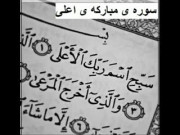 سوره ی مبارکه ی اعلی
سَبِّحِ اسْمَ رَبِّكَ الْأَعْلَى ۝١
وَالَّذِي أَخْرَجَ الْمَرْعَى
إِلَّا مَا شَاءَ